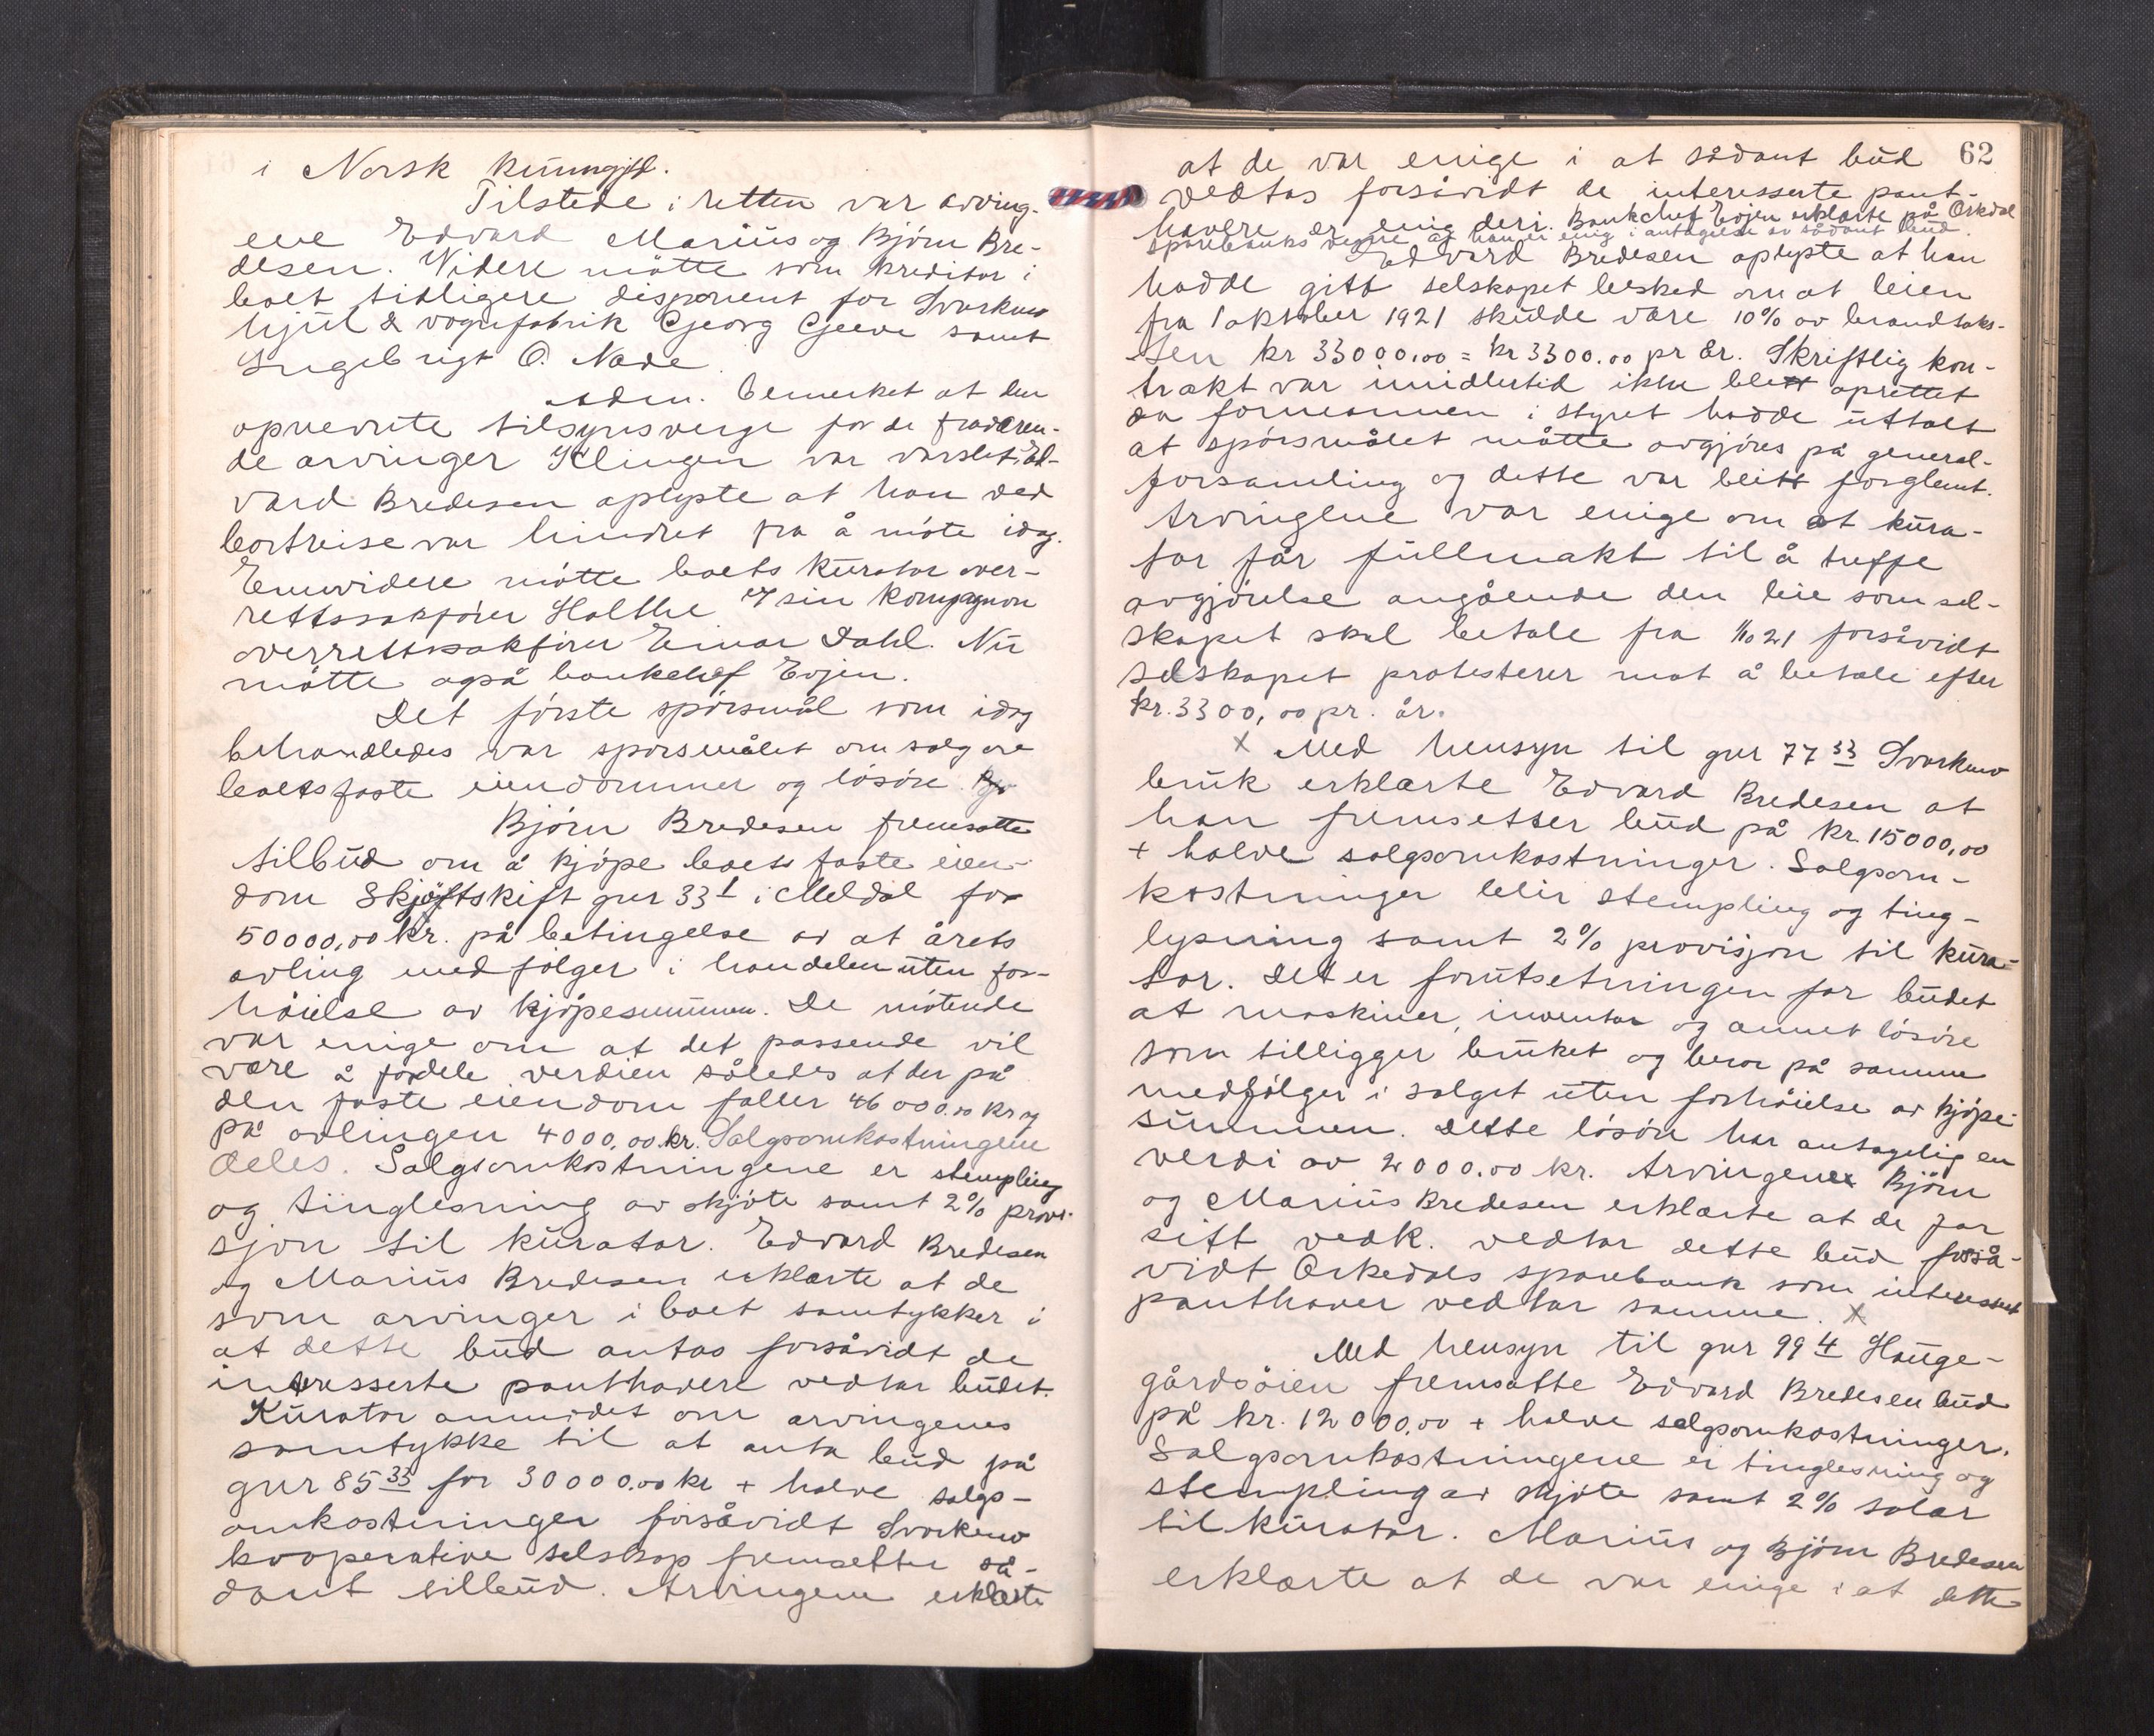 i Norsk kunngjd.
Tilstede i retten var arving-
ene Edvard Marius og Bjørn Bre-
desen. Videre møtte som kreditor i
boet tidligere disponent for Svorkmo
hjul & vognfabrik Georg Geeve samt
Ingebrigt O. Nade.
Adm. bemerket at den
opnevnte tilsynsverge for de fraværen-
de arvinger Klingen var varslet. Ed-
vard Bredesen oplyste at han ved
bortreise var hindret fra å møte idag.
Ennvidere møtte boets kurator over-
rettssakfører Holthe og sin kompagnon
overrettssakfører Einar Dahl. Nu
møtte også bankchef Evjen.
Det første spørsmål som idag
behandledes var spørsmålet om salg av
boets faste eiendommer og løsøre.
Bjørn Bredesen fremsatte
tilbud om å kjøpe boets faste eien-
dom Skjøftskift gnr 33 1 i Meldal for
50000,00 kr. på betingelse av at årets
avling medfølger i handelen uten for-
høielse av kjøpesummen. De møtende
var enige om at det passende vil
være å fordele verdien således at der på
den faste eiendom faller 46000.00 kr og
på avlingen 4000,00 kr. Salgsomkostningene
deles. Salgsomkostningene er stempling
og tinglesning av skjøte samt 2% provi-
sjon til kurator. Edvard Bredesen
og Marius Bredesen erklærte at de
som arvinger i boet samtykker i
at dette bud antas forsåvidt de
interesserte panthavere vedtar budet.
Kurator anmodet om arvingenes
samtykke til at anta bud på
gnr 85 33 for 30000.00 kr + halve salgs-
omkostninger forsåvidt Svorkmo
kooperative selskap fremsetter så-
dant tilbud. Arvingene erklærte
62
at de var enige i at sådant bud
vedtas forsåvidt de interesserte pant-
havere er enig deri. Bankchef Evjen erklærte på Orkdal
sparebanks vegne at han er enig i antagelse av sådant bud.
Edvard Bredesen oplyste at han
hadde gitt selskapet besked om at leien
fra 1 oktober 1921 skulde være 10% av brandtaks-
ten kr 33000,00 = kr 3300.00 pr år. Skriftlig kon-
trakt var imidlertid ikke blett oprettet
da formannen i styret hadde uttalt
at spørsmålet måtte avgjøres på general-
forsamling og dette var blitt forglemt.
Arvingene var enige om at kura-
tor får fullmakt til å treffe
avgjørelse angående den leie som sel-
skapet skal betale fra 1/10 21 forsåvidt
selskapet protesterer mot å betale efter
kr. 3300,00 pr. år.
x Med hensyn til gnr 77 33 Svorkmo
bruk erklærte Edvard Bredesen at
han fremsetter bud på kr. 15000,00
+ halve salgsomkostninger. Salgsom-
kostninger blir stempling og ting-
lysning samt 2% provisjon til kura-
tor. Det er forutsetningen for budet
at maskiner, inventar og annet løsøre
som tilligger bruket og beror på samme
medfølger i salget uten forhøielse av kjøpe-
summen. Dette løsøre har antagelig en
verdi av 2000.00 kr. Arvingene Bjørn
og Marius Bredesen erklærte at de for
sitt vedk. vedtar dette bud forså-
vidt Orkedals sparebank som interessert
panthaver vedtar samme. x
Med hensyn til gnr 99 4 Hauge-
gårdsøien fremsatte Edvard Bredesen bud
på kr. 12000,00 + halve salgsomkostninger.
Salgsomkostningene er tinglesning og
stempling av skjøte samt 2% salær
til kurator. Marius og Bjørn Bredesen
erklærte at de var enige i at dette